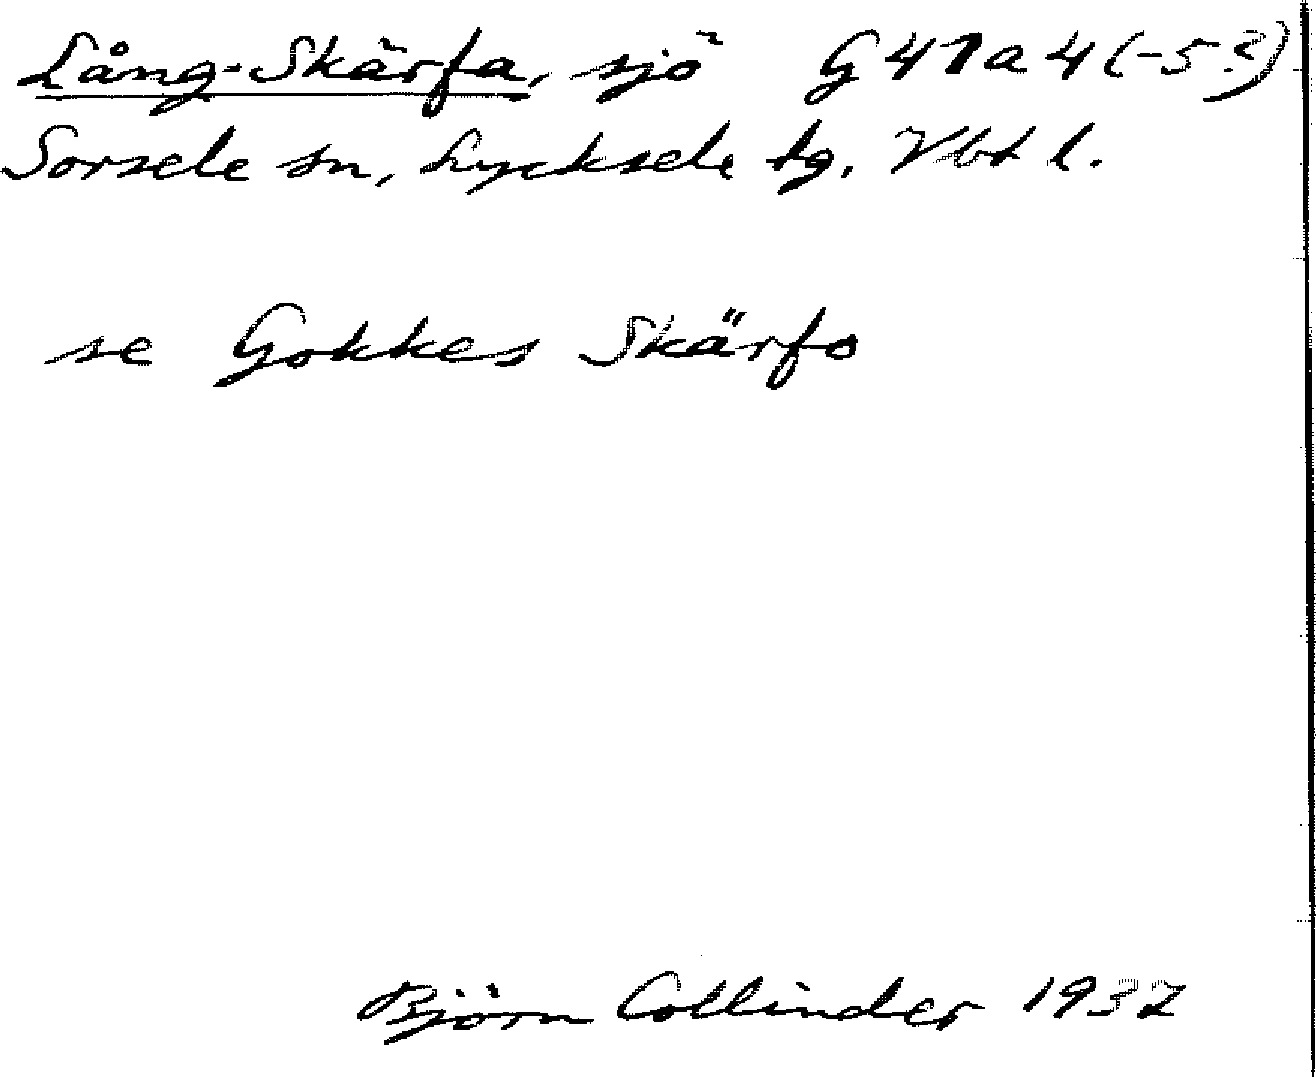 Lång-Skärfa, sjö G 41 a 4 (-5?)
Sorsele sn, Lycksele tg. Vbt l.
se Gokkes Skärfo
Björn Collinder 1937